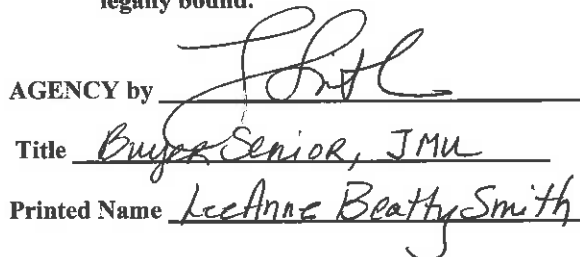 legally bound.
AGENCY by LSmith
Title Buyer Senior, JMU
Printed Name LeeAnne Beatty Smith